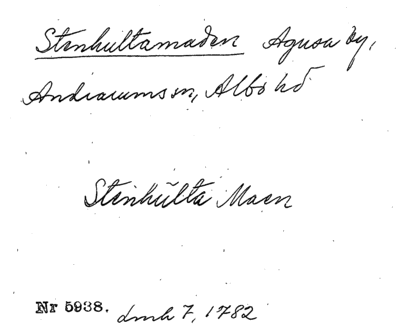 Stenhultamaden Agusa by,
Andrarums sn, Albo hd
Stenhülta Maen
Nr 5938. dmh 7, 1782